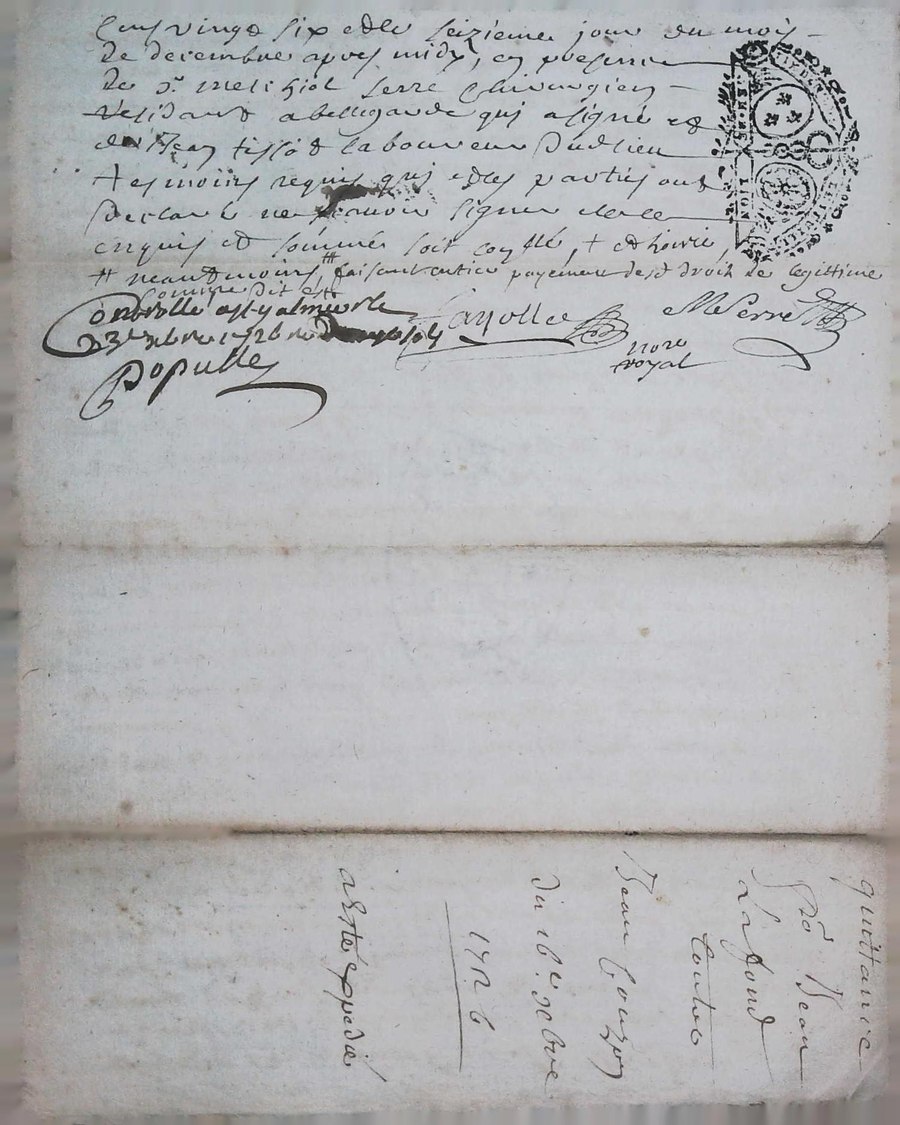 Cens vingt six et le seizieme jour du mois
de decembre apres midy, en presence
de sr. melchiol serre chirurgien
residant a bellegarde qui a signé et
de Jean tissot laboureur dudt lieu
+ esmoins requis qui et les parties ont
declaré ne scavoir signer de ce
enquis et sommés soit conllé, + et hoirie,
# neautmoins # faisant entier payement desd droit de legittime
comme dit est
Controllé a st galmier le
23e xbre 1726 Re
Populle
Fayolle
nore
royal
MSerre
quittance
po Jean
Lafond
Contre
Jean Couzon
du 16e. xebre
1726
a este expedié